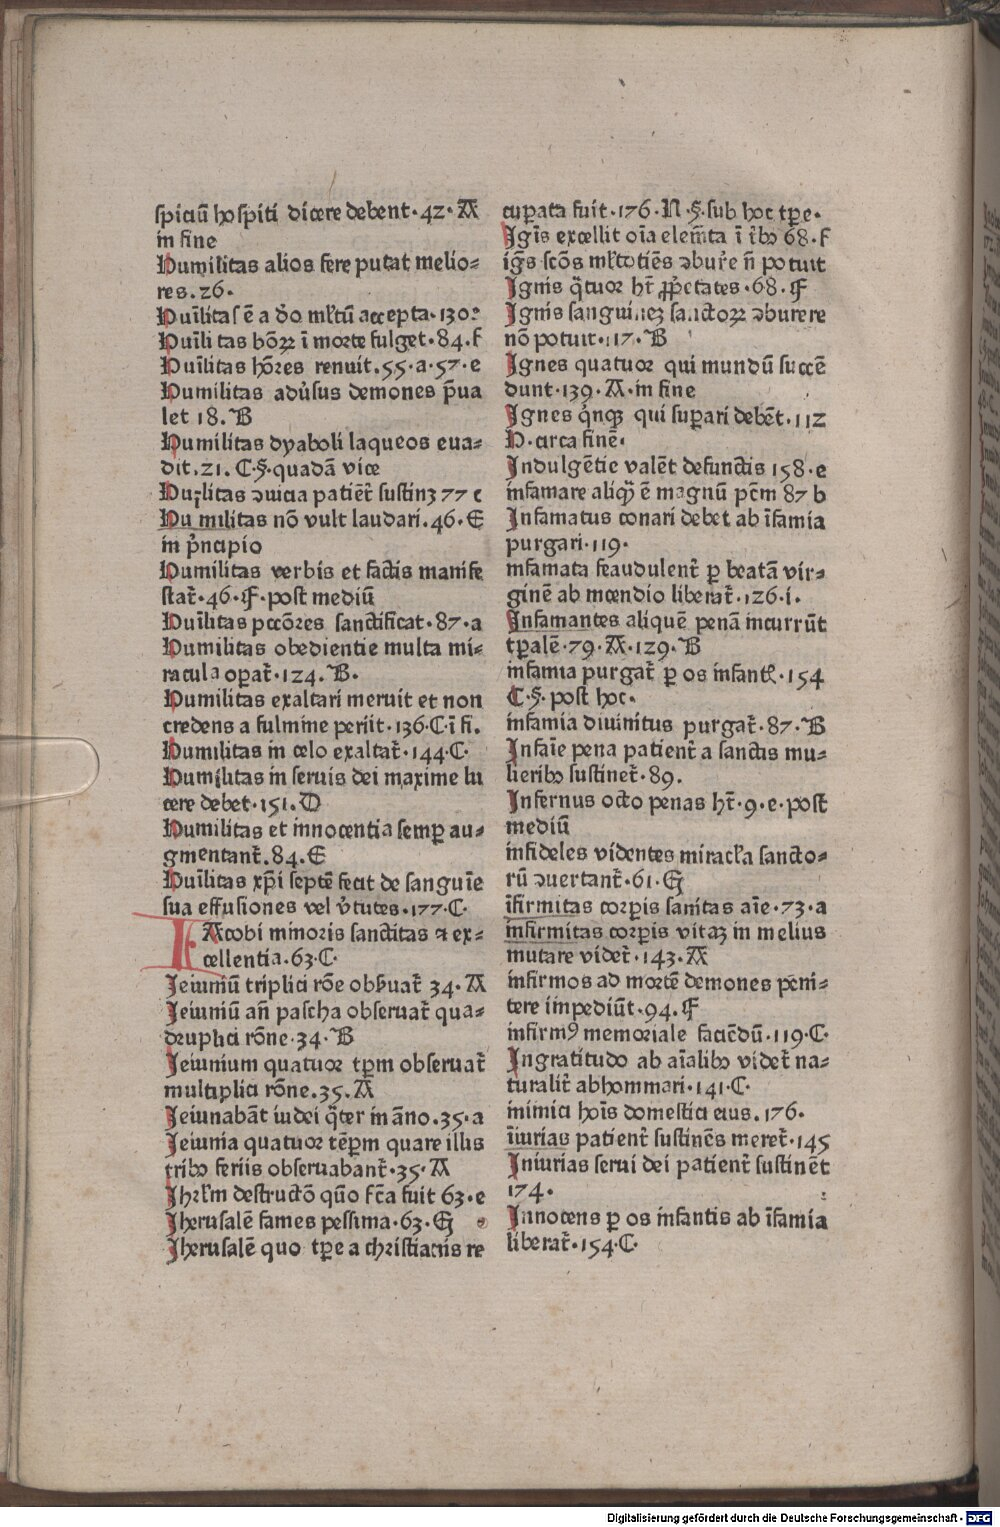 spiciū hospiti dicere debent·42·A
in fine
Humilitas alios fere putat melio⸗
res.26·
Huīlitas ē a dño ml̓tū accepta·130·
Huīli tas bōꝝ ī morte fulget·84·f
Huīlitas hōres renuit.55·a·57·e
Humilitas adu̓sus demones p̄ua
let 18.B
Humilitas dyaboli laqueos eua⸗
dit.21.C·§·quadā vice
Huīlitas ꝯuicia patiēt̓ sustinꝫ 77 c
Hu militas nō vult laudari.46·E
in pi̓ncipio
Humilitas verbis et factis manife
stat̓·46·F·post mediū
Huīlitas pccōres sanctificat·87·a
Humilitas obedientie multa mi⸗
racula oꝑat̓·124·B·
Humilitas exaltari meruit et non
credens a fulmine periit·136·C·ī fi.
Humilitas in celo exaltat̓·144·C·
Humilitas in seruis dei maxime lu
cere debet·151.D
Humilitas et innocentia semꝑ au⸗
gmentant̓.84.E
Huīlitas xp̄i septē fecit de sanguīe
sua effusiones vel v̓tutes·177·C·
IAcobi minoris sanctitas ⁊ ex⸗
cellentia.63·C·
Jeiuniū triplici rōe obẜuat̓ 34·A
Jeiuniū añ pascha obseruat̓ qua⸗
druplici rōne·34·B
Jeiunium quatuor tꝑm obseruat̓
multiplici rōne.35.A
Jeiunabāt iudei q̄ter in āno.35·a
Jeiunia quatuor tēꝑm quare illis
tribꝰ feriis obseruabant̓·35·A
Jhrl̓m destructō quō fc̄a fuit 63·e
Jherusalē fames pessima·63·G
Jherusalē quo tꝑe a christianis re
cuꝑata fuit·176·N·§·sub hoc tꝑe·
Ignis excellit oīa elem̄ta ī ti̓bꝰ 68·f
ig̓s scōs ml̓totiēs ꝯbur̓e ñ potuit
Ignis q̄tuor hn̄t ꝓpi̓etates·68·F
Ignis sanguinez sanctoꝝ ꝯburere
nō potuit·117·B
Ignes quatuor qui mundū succē
dunt·139·A·in fine
Ignes qi̓nqꝫ qui suꝑari debēt·112
D·circa finē·
Indulgētie valēt defunctis 158·e
infamare aliquē ē magnū pc̄m 87 b
Infamatus conari debet ab īfamia
purgari·119·
infamata feaudulent̓ ꝑ beatā vir⸗
ginē ab incendio liberat̓·126·i·
Infamantes aliquē penā incurrūt
tꝑalē·79·A·129·B
infamia purgat̓ ꝑ os infantꝭ·154
C·§·post hoc·
infamia diuinitus purgat̓·87·B
Infaīe pena patient̓ a sanctis mu⸗
lieribꝰ sustinet̓·89.
Infernus octo penas hn̄t·9·e·post
mediū
infideles videntes miracl̓a sancto⸗
rū ꝯuertant̓·61·G
īfirmitas corꝑis sanitas aīe·73·a
infirmitas corꝑis vitaꝫ in melius
mutare videt̓·143·A
infirmos ad mortē demones peni⸗
tere impediūt·94.F
infirmꝰ memoriale faciēdū·119·C·
Ingratitudo ab aīalibꝰ videt̓ na⸗
turalit̓ abhominari·141·C·
inimici hoīs domestici eius.176·
īiurias patient̓ sustinēs meret̓·145
Iniurias serui dei patient̓ sustinēt
174·
Innocens ꝑ os infantis ab īfamia
liberat̓·154·C·
Digitalisierung gefördert durch die Deutsche Forschungsgemeinschaft - DFG